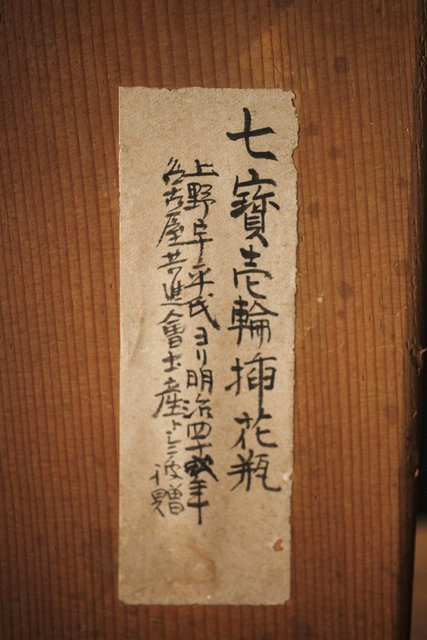 七寳壱輪挿花瓶
上野 平氏ヨリ明治四十 年
名古屋共進會土産トシテ被贈